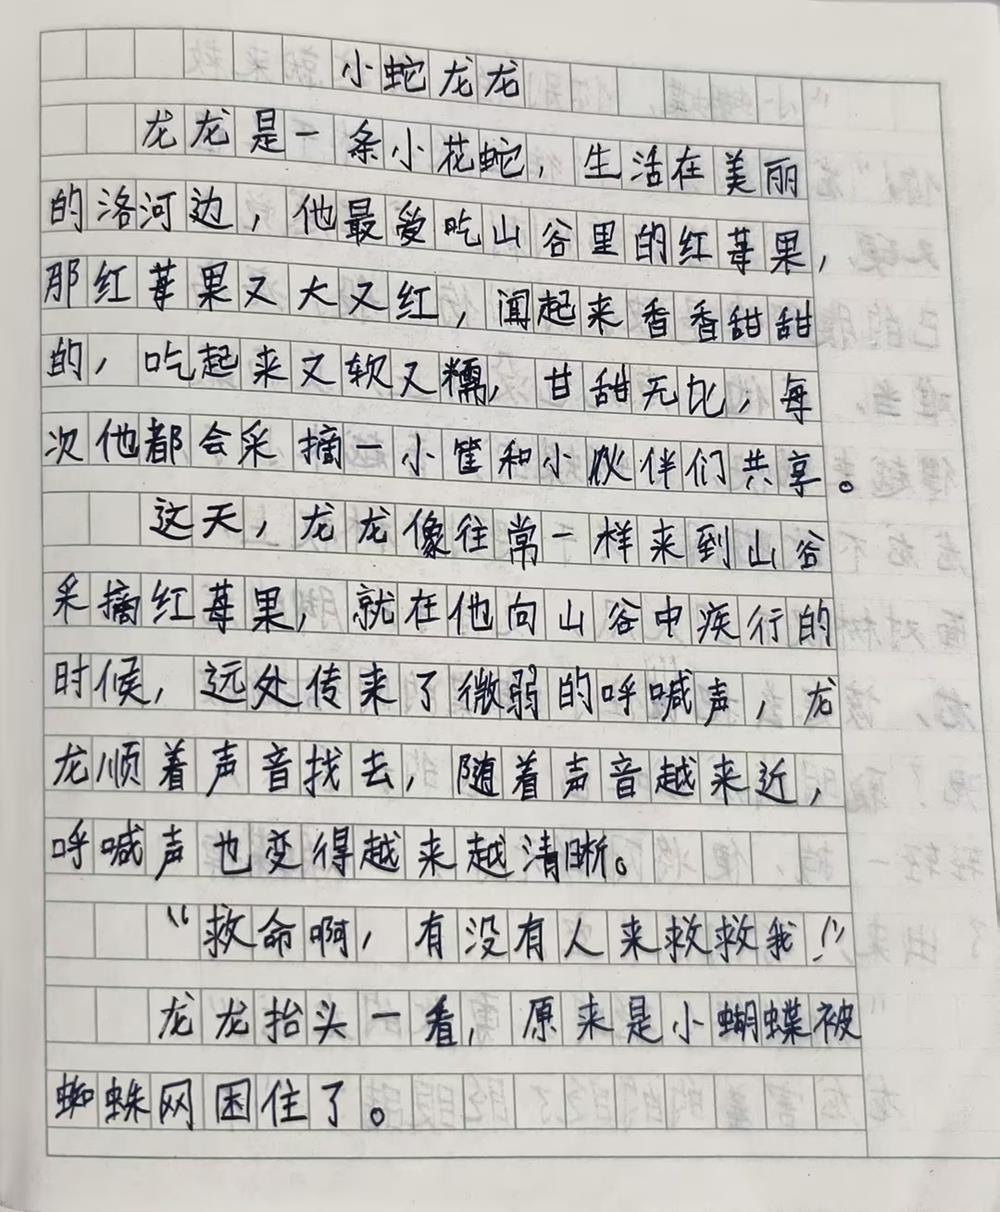 小蛇龙龙
龙龙是一条小花蛇，生活在美丽
的洛河边，他最爱吃山谷里的红莓果，
那红莓果又大又红，闻起来香香甜甜
的，吃起来又软又糯，甘甜无比，每
次他都会采摘一小筐和小伙伴们共享。
这天，龙龙像往常一样来到山谷
采摘红莓果，就在他向山谷中疾行的
时候，远处传来了微弱的呼喊声，龙
龙顺着声音找去，随着声音越来近，
呼喊声也变得越来越清晰。
“救命啊，有没有人来救救我！”
龙龙抬头一看，原来是小蝴蝶被
蜘蛛网困住了。